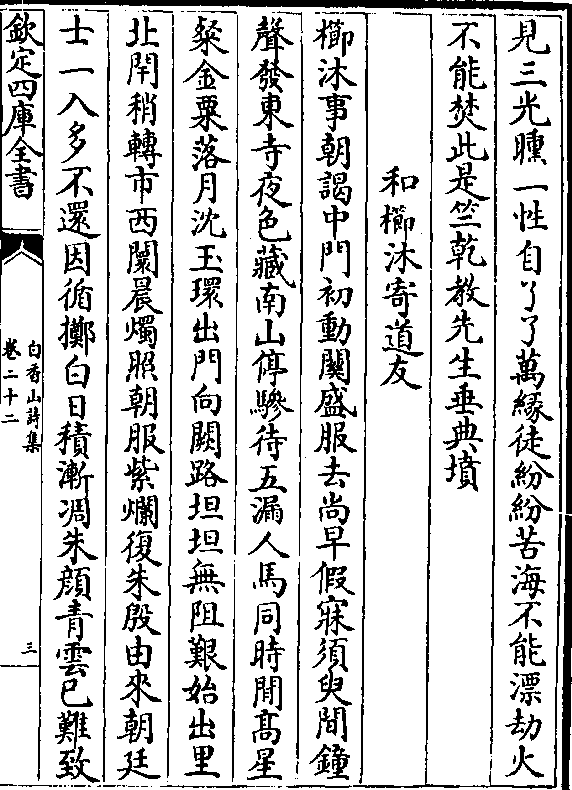 見三光曛一性自了了萬縁徒紛紛苦海不能漂劫火
不能焚此是竺乾教先生垂典墳
和櫛沐寄道友
櫛沐事朝謁中門初動闗盛服去尚早假寐須臾間鐘
聲發東寺夜色藏南山停驂待五漏人馬同時閒髙星
粲金粟落月沈玉環出門向闕路坦坦無阻艱始出里
北閈稍轉市西闤晨燭照朝服紫爛復朱殷由來朝廷
士一入多不還因循擲白日積漸凋朱顔青雲已難致
欽定四庫全書
白香山詩集
卷二十二
三